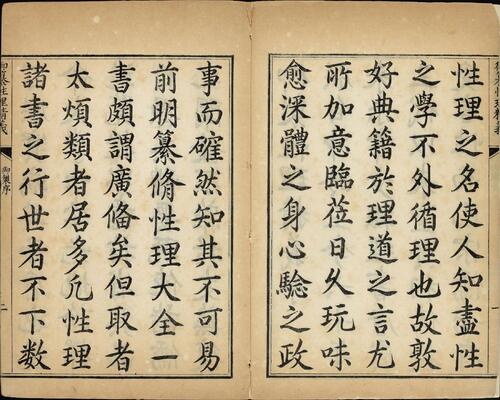 性理之名使人知盡性
之學不外循理也故敦
好典籍於理道之言尤
所加意臨莅日久玩味
愈深體之身心驗之政
事而確然知其不可易
前明纂脩性理大全一
書頗謂廣備矣但取者
太煩類者居多凡性理
諸書之行世者不下數
御纂性理精義
御製序
二